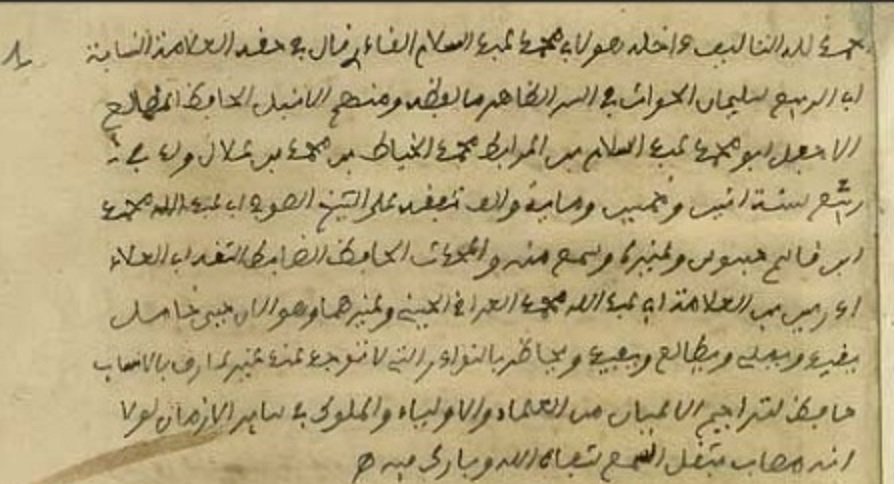 الحمد لله التاليف داخله هو لاب محمد عبد السلام القادري قال في حقه العلامة النسابة
ابو الربيع سليمان الحوات في السر الظاهر ما لفظه ومنهم الانبل الحافظ المطالع
الاحفل ابو محمد عبد السلام بن المرابط محمد الخياط بن محمد بن علال ولد في
ربيع سنة اثنين وخمسين وماية والف تفقه على الشيخ الصوفي اب عبد الله محمد
ابن قاسم جسوس وغيره وسمع منه والمحدث الحافظ الضابط الثقة اب العلاء
ادريس بن العلامة اب عبد الله محمد العراقي الحسيني وغيرهما وهو الان حي خامل
يقيد ويملي ويطالع ويفيد ويحاضر بالنوادر التي لا توجد عند غيره عارف بالانساب
حافظ لتراجم الاعيان من العلماء والاولياء والملوك في ساير الازمان لولا
انه مصاب بثقل السمع شفاه الله وبارك فيه هـ